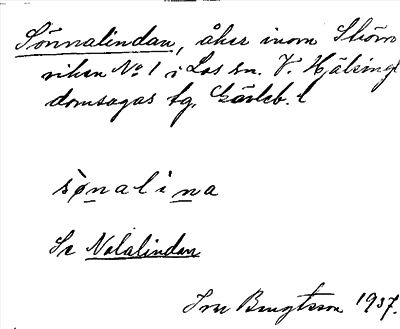 Sönnalindan, åker inom Skörm
riken No 1 i Los sn. V. Hjälsingl
domsagas tg. Gävleb. l
sønalina
Se Nolalindan
Bengtsson 1937.